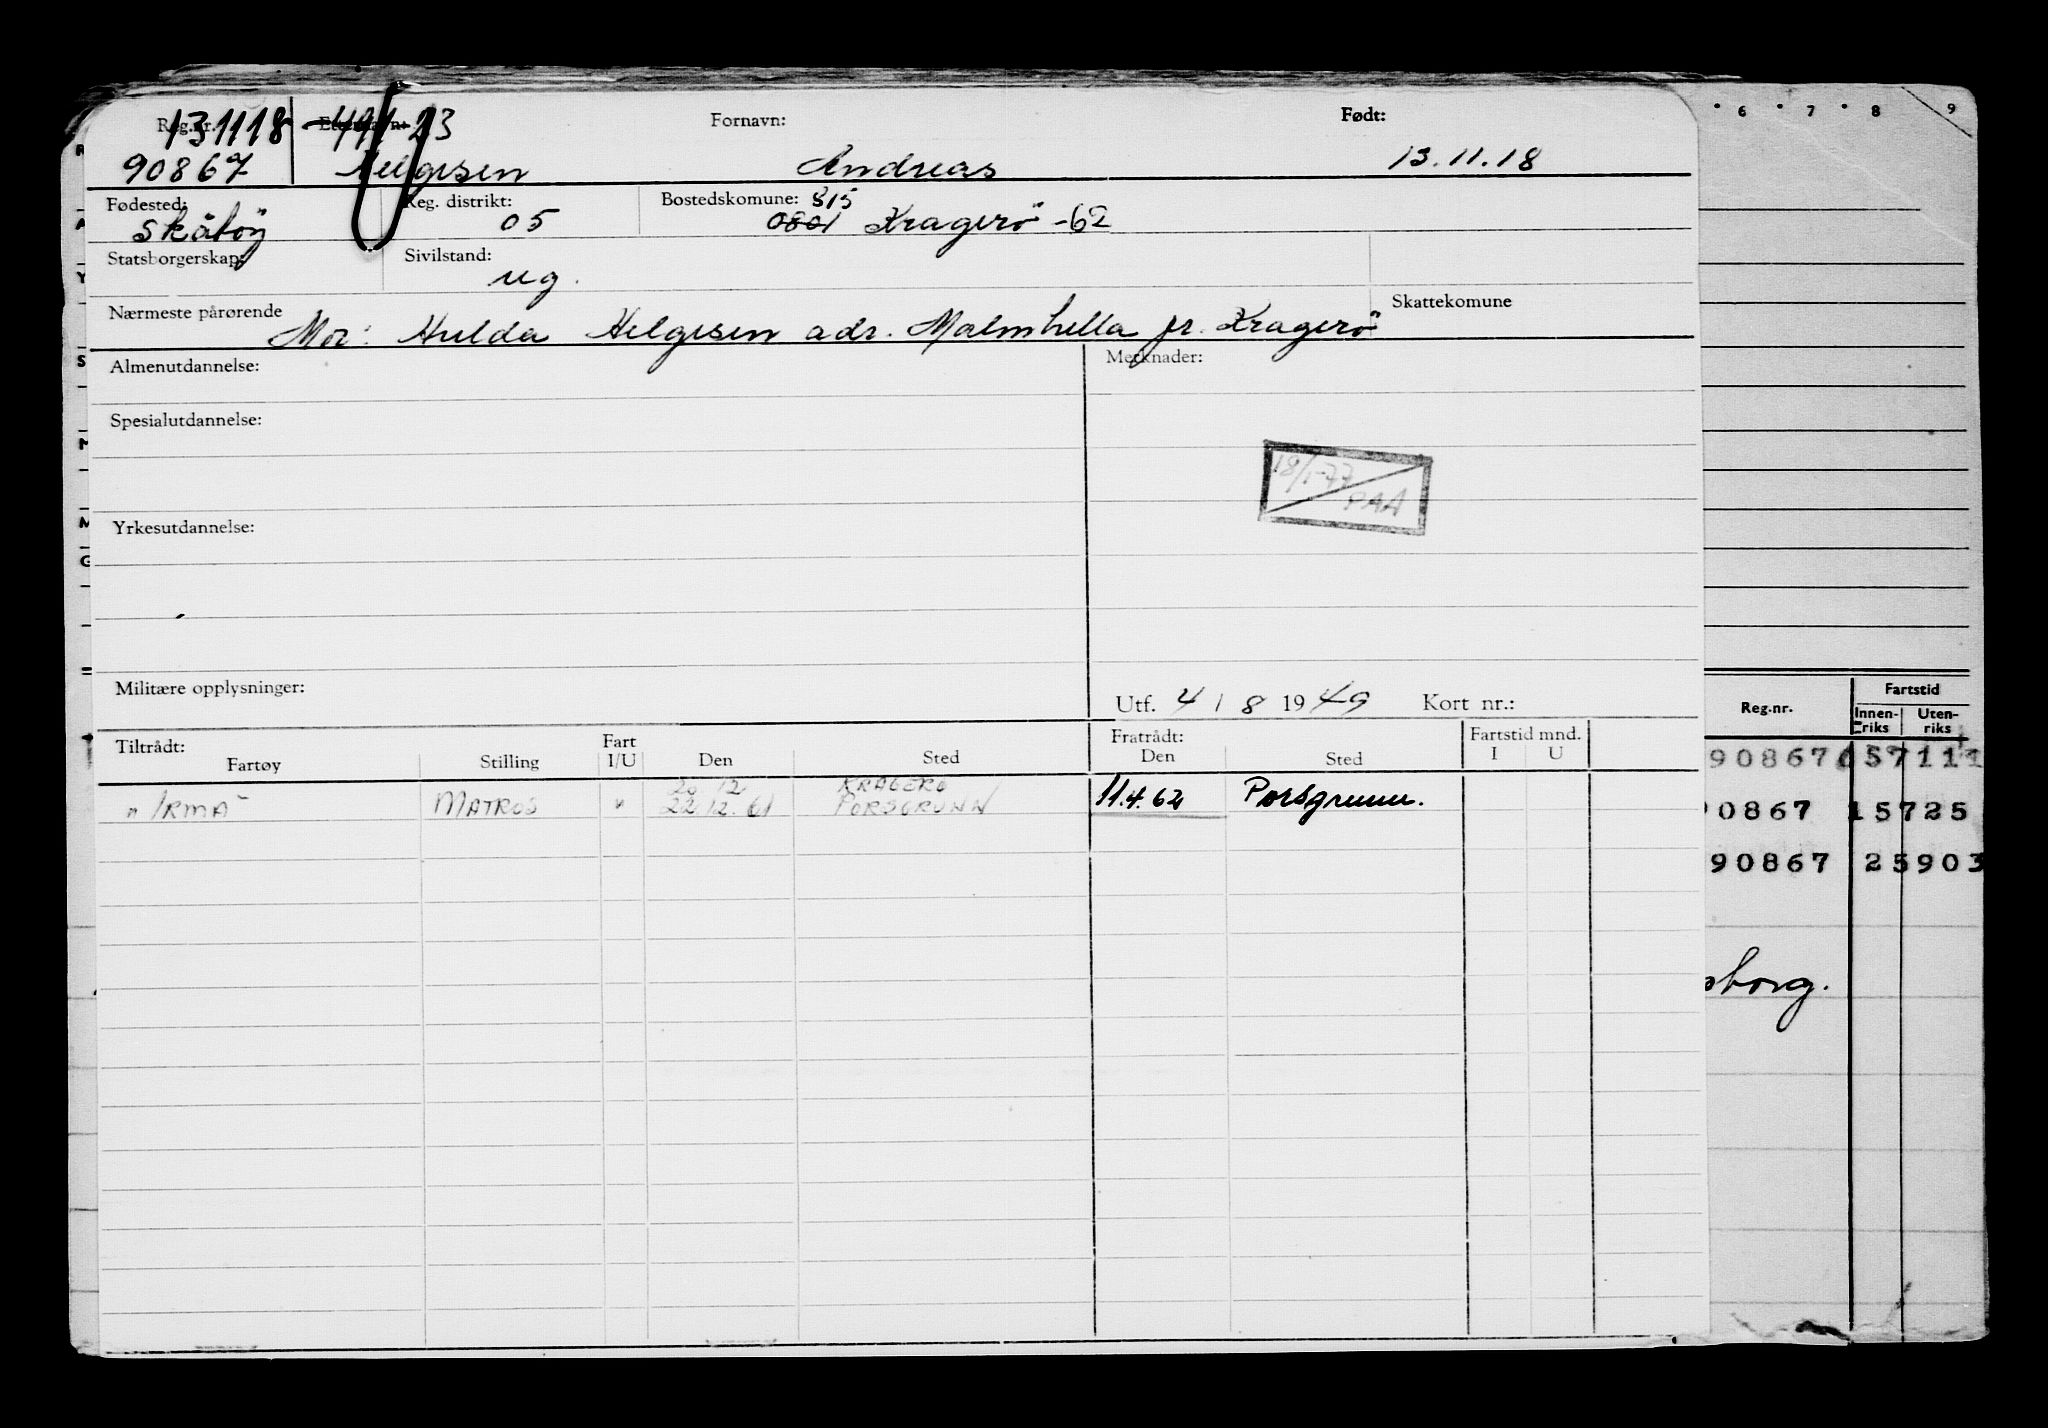 6 7 8 9
Reg.nr. 131118 491 23
90867 Helgesen Fornavn: Andreas Født: 13.11.18
Fødested: Skåtøy Reg. distrikt: 05 Bostedskomune: 815 0801 Kragerö -62
Statsborgerskap: Sivilstand: ug.
Nærmeste pårørende Mor: Hulda Helgesen adr. Malmhella pr. Kragerö Skattekomune
Almenutdannelse: Merknader:
Spesialutdannelse:
18/1-77
PAA
Yrkesutdannelse:
Militære opplysninger: Utf. 4 / 8 1949 Kort nr.:
Tiltrådt: Fratrådt: Fartstid mnd.
Fartøy Stilling Fart I/U Den Sted Den Sted I U
20 12 KRAGERØ
"IRMA" MATROS " 22 12. 61 PORSGRUNN 11.4.62 Porsgrunn.
Reg.nr. Fartstid
Innenriks Utenriks
90867 157111
0867 15725
90867 25903
borg.